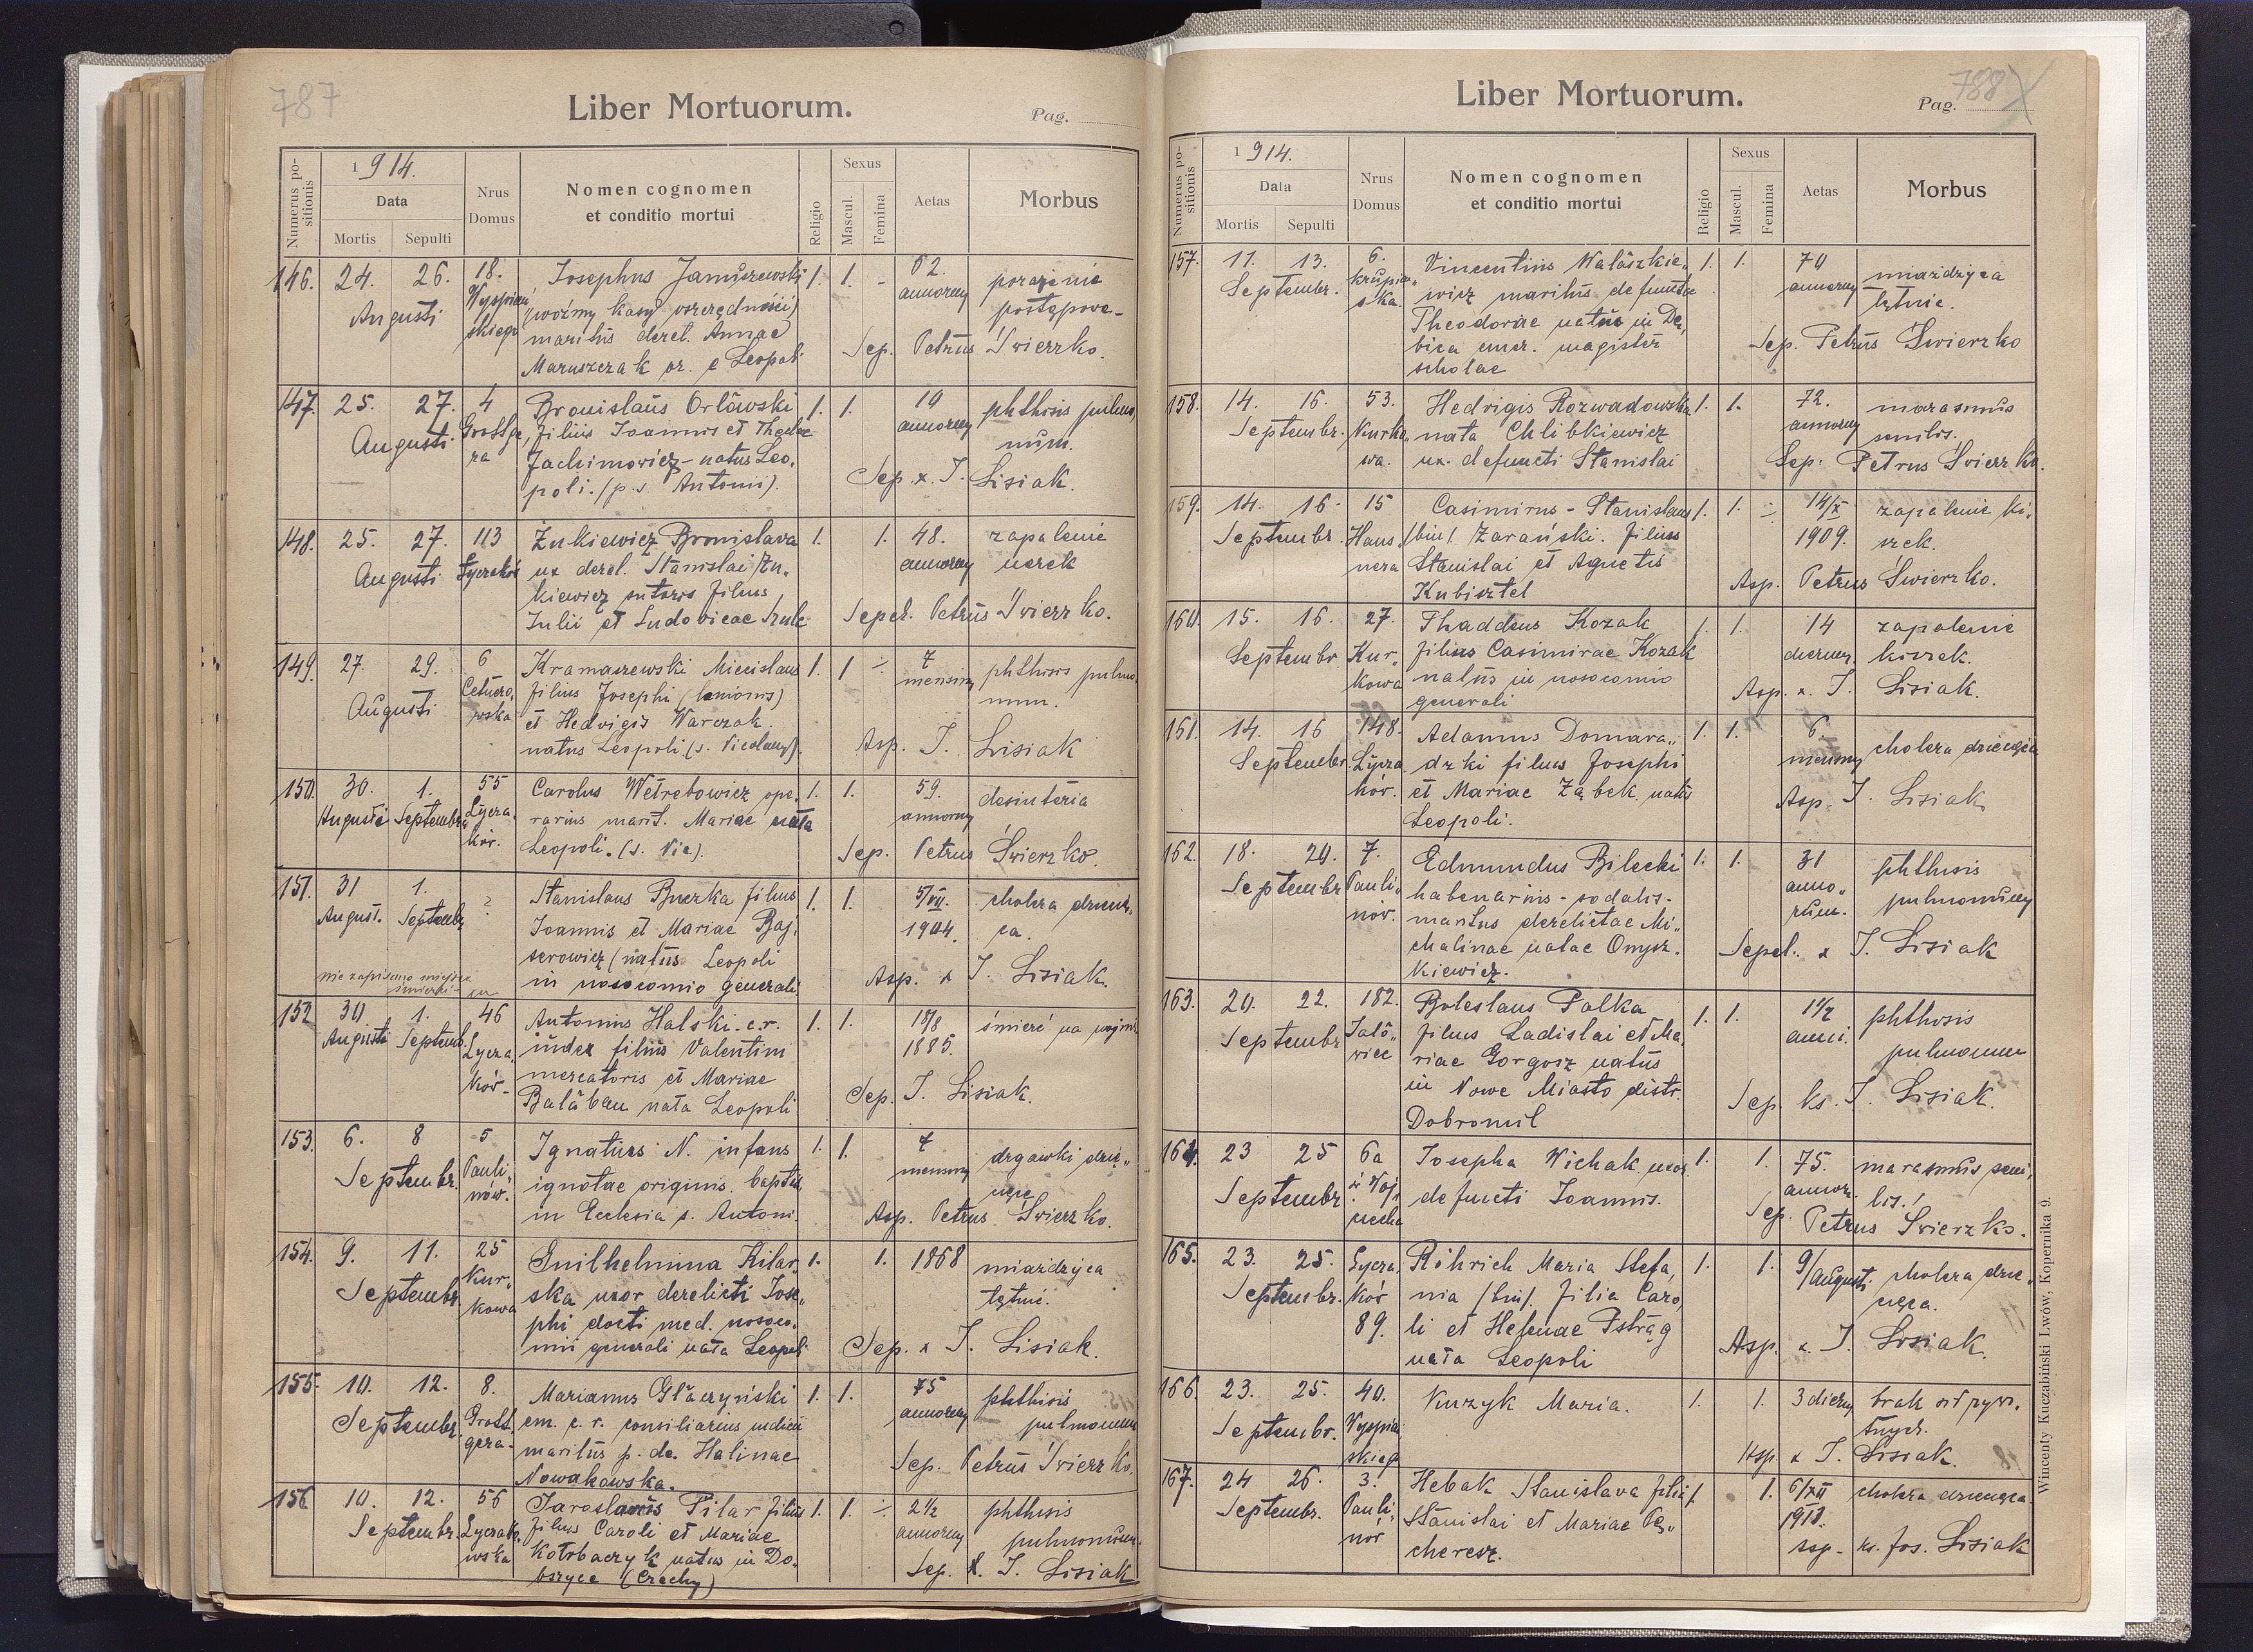 787
Liber Mortuorum.
Pag.
Numerus positionis
1914.
Data
Mortis
Sepulti
Nrus Domus
Nomen cognomen
et conditio mortui
Religio
Sexus
Mascul.
Femina
Aetas
Morbus
146. 24. 26. 18. Josephus Januszewski 1. 1. - 62. porażenie
Augusti Wyspiań (woźny kasy oszczędności) annorum postępowe
skiego maritus derel. Annae Sep. Petrus Świerzko.
Maruszczak or. e Leopoli
147. 25. 27. 4 Bronislaus Orławski 1. 1. 19 phthisis pulmo
Augusti Grottge filius Joannis et Theclae annorum num.
ra Jachimowicz - natus Leo,
poli. (p. s. Antonii). Sep. x. J. Lisiak.
148. 25. 27. 113 Żukiewicz Bronislava 1. 1. 48. zapalenie
Augusti Łyczakó ux derel. Stanislai Żu, annorum nerek
kiewicz sutoris filius
Julii et Ludovicae Szulc Sepel. Petrus Świerzko.
149. 27. 29. 6 Kramaszewski Miecislaus 1. 1 ÷ 7 phthisis pulmo
Augusti Cetnero, filius Josephi (lanionis) mensium num.
wska et Hedvigis Warczak.
natus Leopoli. (s. Nicolaus). Asp. J. Lisiak
150. 30. 1. 55 Carolus Wetrebowicz ope, 1. 1. 59. desinteria
Augusti Septembr Łycza, rarius marit. Mariae nata annorum
kór. Leopoli. (s. Nic). Sep. Petrus Świerzko.
151. 31 1. ? Stanislaus Buczka filius 1. 1. 5/VII. cholera dziecię,
August. Septembr Joannis et Mariae Baj, 1904. ca.
serowicz (natus Leopoli
nie zapisano miejsca
śmierci in nosocomio generali. Asp. x J. Lisiak.
152 30 1. 46 Antonius Halski. c.r. 1. 1. 18/8 śmierć na wojnie
Augusti Septemb. Łycza, iudex filius Valentini 1885.
kór- mercatoris et Mariae
Bałaban nata Leopoli Sep. J. Lisiak.
153. 6. 8 5 Ignatius N. infans 1. 1. 7 drgawki dzie,,
Septembr. Pauli, ignotae originis. baptis, mensium cięce
nów. in Ecclesia s. Antoni. Asp. Petrus Świerzko.
154. 9. 11. 25 Guilhelmina Kilar, 1. 1. 1868 miażdżyca
Septembr. Kur, ska uxor derelicti Jose, tętnic.
kowa phi docti med. nosoco,
mii generali nata Leopoli Sep. x J. Lisiak.
155. 10. 12. 8. Marianus Głaczyński 1. 1. 75 phthisis
Septembr. Grott em. c. r. consiliarius medici annorum pulmonum
gera- maritus p. de. Halinae
Nowakowska. Sep. Petrus Świerzko.
156. 10. 12. 56 Jaroslaus Pilar filius 1. 1. ÷ 2½ phthisis
Septembr. Łyczako, filius Caroli et Mariae annorum pulmonum.
wska Kołrbaczyk natus in Do,
brzyce (Czechy) Sep. X. J. Lisiak
Liber Mortuorum.
Pag. 788
Numerus positionis
1914.
Data
Mortis
Sepulti
Nrus Domus
Nomen cognomen
et conditio mortui
Religio
Sexus
Mascul.
Femina
Aetas
Morbus
157. 11. 13. 6. Vincentius Walaszkie,, 1. 1. 70 miażdżyca
Septembr. Krupiar wicz maritus defunctae annorum tętnic.
ska. Theodorae natus in Dę,
bica emer. magister Sep. Petrus Świerzko
scholae
158. 14. 16. 53. Hedvigis Rozwadowska 1. 1. 72. marasmus
Septembr. Kurko, nata Chlibkiewicz annorum senilis.
wa. ux. defuncti Stanislai Sep. Petrus Świerzko.
159. 14. 16. 15 Casimirus - Stanislaus 1. 1. ÷ 14/X zapalenie ki,
Septembr. Haus, (bin) Żarański. filius 1909. szek.
nera Stanislai et Agnetis
Kubisztel Asp. Petrus Świerzko.
160. 15. 16. 27. Thaddeus Kozak 1. 1. 14 zapalenie
Septembr Kur, filius Casimirae Kozak dierum. kiszek.
kowa natus in nosocomio
generali Asp. x. J. Lisiak.
161. 14. 16 148. Adamus Domara,, 1. 1. 6. cholera dziecięca
Septembr. Łycza, dzki filius Josephi mensium
kór. et Mariae Ząbek natus
Leopoli. Asp. J. Lisiak
162. 18. 20. 7. Edmundus Bilecki 1. 1. 31 phthisis
Septembr Pauli,, habenarius - sodalis- anno,, pulmonum
nów. maritus derelictae Mi,, rum.
chalinae natae Onysz. Sepel. x J. Lisiak
kiewicz.
163. 20. 22. 182. Boleslaus Palka 1. 1. 1½ phthisis
Septembr Jało, filius Ladislai et Ma, anni. pulmonum
wiec riae Gorgosz natus
in Nowe Miasto distr. Sep. ks. J. Lisiak.
Dobromil
164. 23 25 6a Josepha Wichak uxor 1. 1. 75. marasmus seni,
Septembr ś. Woj, defuncti Joannis. annor. lis.
ciecha Sep. Petrus Świerzko.
165. 23. 25. Łycza, Röhrich Maria Stefa, 1. 1. 9/August. cholera dzie,
Septembr. kór nia (bin). filia Caro, cięca.
89. li et Helenae Pstrąg
nata Leopoli Asp. x. J. Lisiak.
166. 23. 25. 40. Kuzyk Maria. 1. 1. 3 dierum brak sił żyw.
Septembr. Wyspia, tnych.
skiego Asp. x J. Lisiak.
167. 24 26. 3. Hebak Stanislava filia 1. 1. 6/XII cholera dziecięca
Septembr. Pauli, Stanislai et Mariae 1913.
nór cheresz. Asp- ks. Jos. Lisiak
Wincenty Kuczabiński Lwów, Kopernika 9.